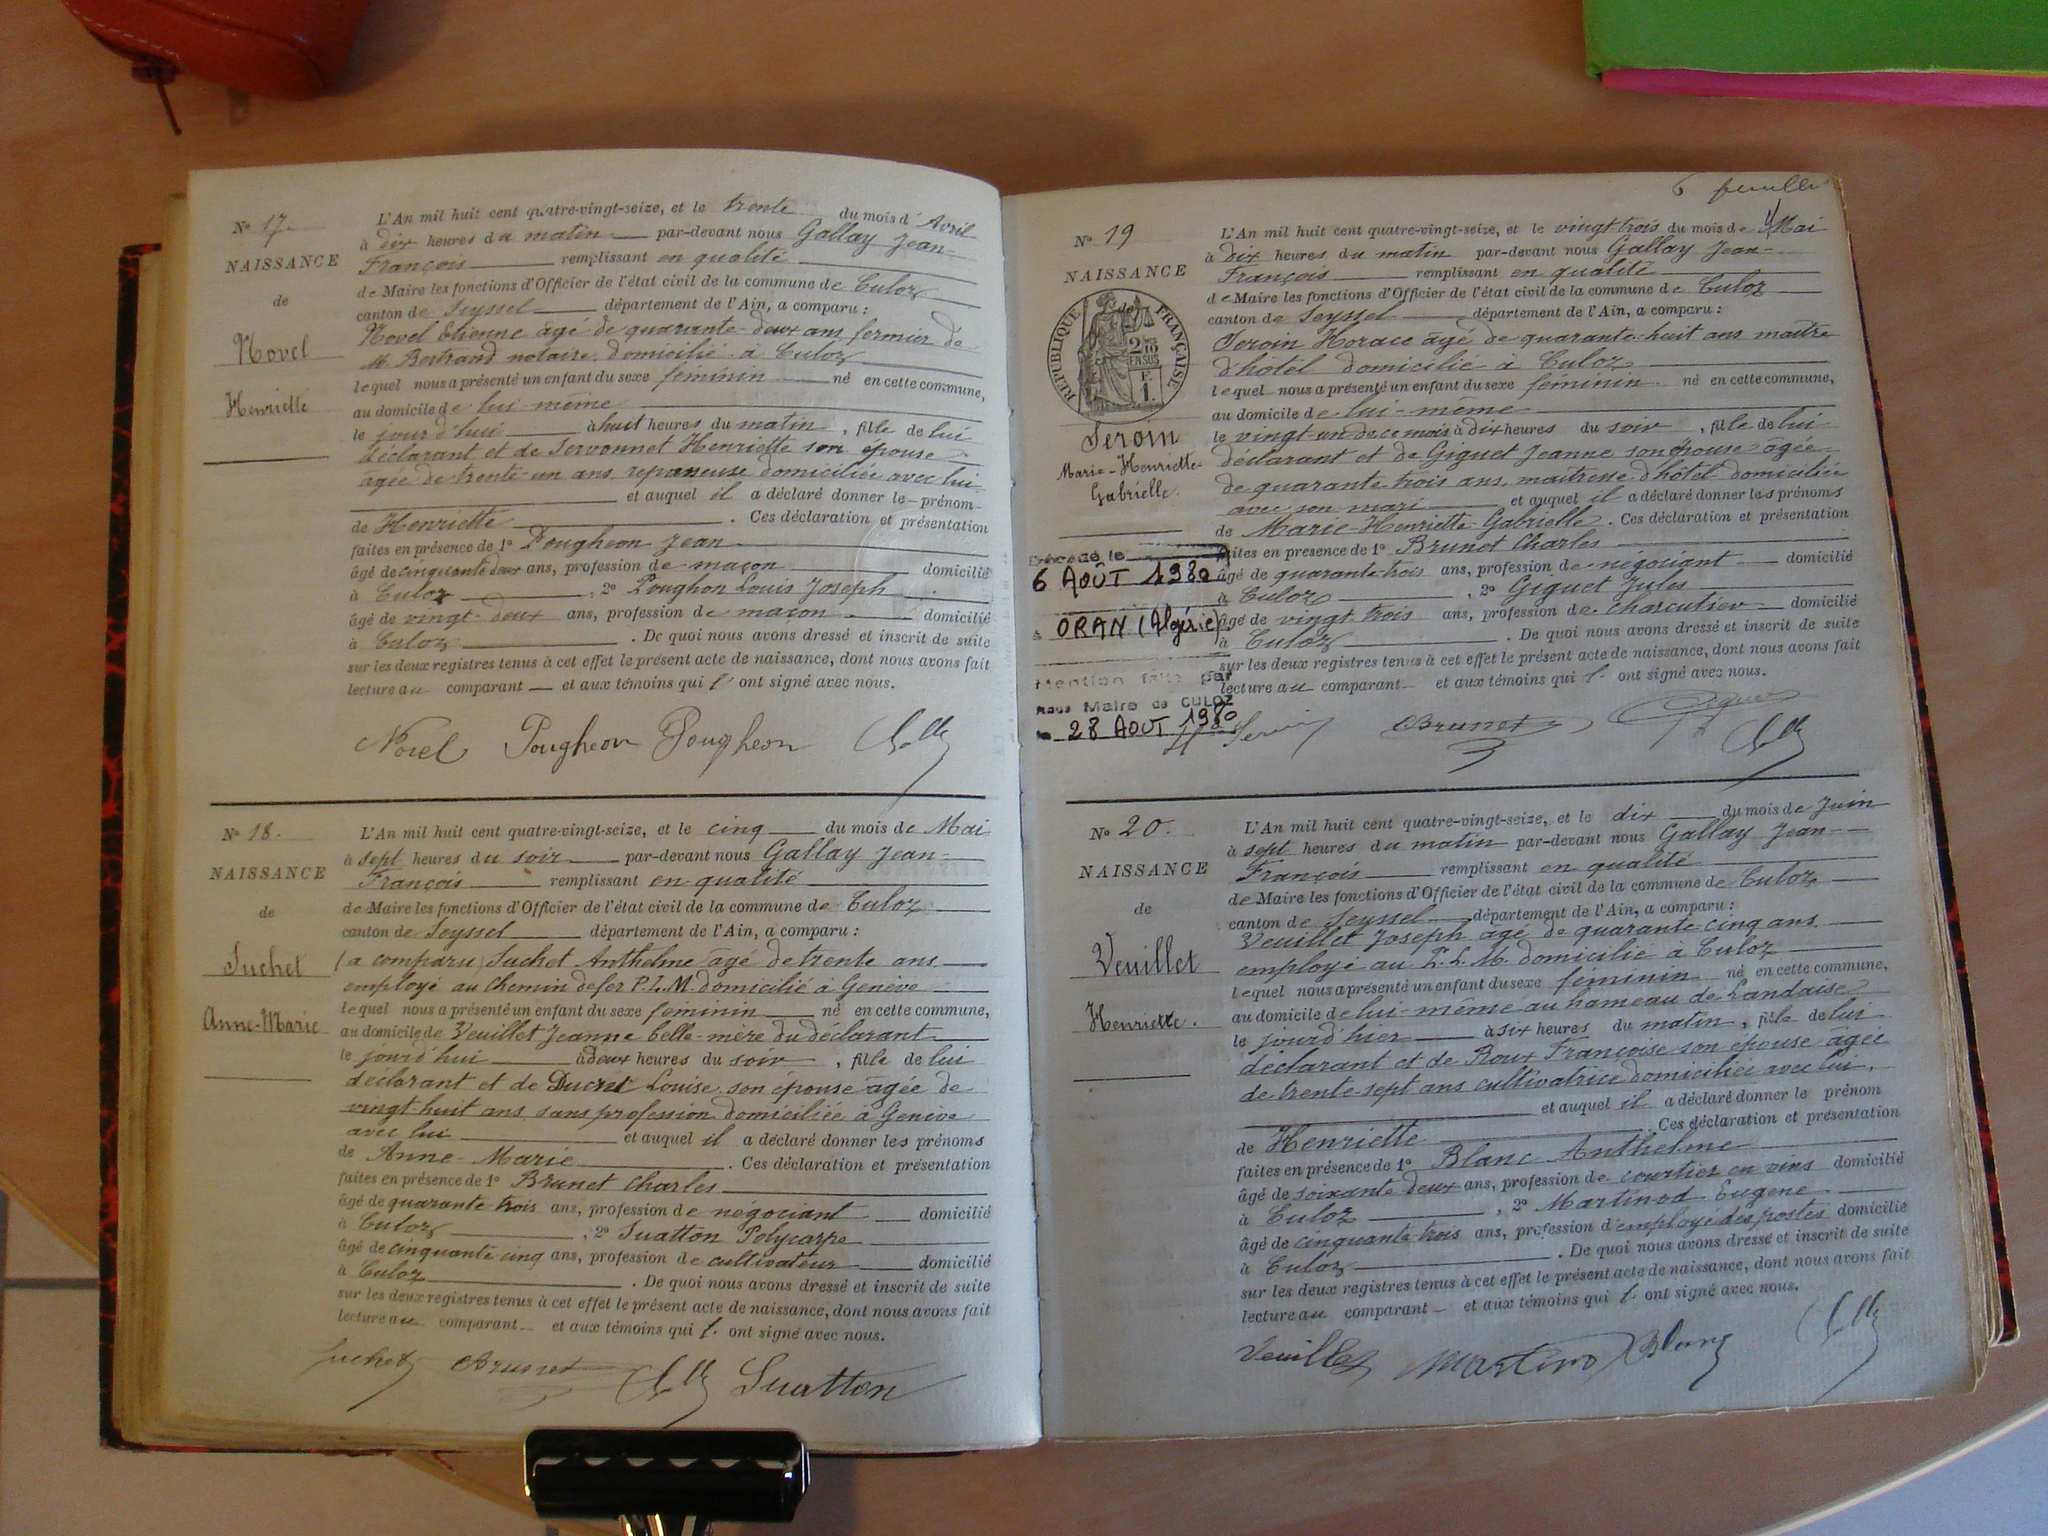 N° 17.
NAISSANCE
de
Novel
Henriette
L'An mil huit cent quatre-vingt-seize, et le trente du mois d'Avril
à dix heures du matin par-devant nous Gallay Jean-
François remplissant en qualité
de Maire les fonctions d'Officier de l'état civil de la commune de Culoz
canton de Seyssel département de l'Ain, a comparu :
Novel Etienne âgé de quarante-deux ans fermier de
M. Bertrand notaire domicilié à Culoz
lequel nous a présenté un enfant du sexe féminin né en cette commune,
au domicile de lui-même
le jourd'hui à huit heures du matin, fille de lui
déclarant et de Servonnet Henriette son épouse
âgée de trente-un ans repasseuse domiciliée avec lui
et auquel il a déclaré donner le prénom
de Henriette. Ces déclaration et présentation
faites en présence de 1° Pougheon Jean
âgé de cinquante deux ans, profession de maçon domicilié
à Culoz, 2° Poughon Louis Joseph
âgé de vingt-deux ans, profession de maçon domicilié
à Culoz. De quoi nous avons dressé et inscrit de suite
sur les deux registres tenus à cet effet le présent acte de naissance, dont nous avons fait
lecture au comparant et aux témoins qui l' ont signé avec nous.
Novel Pougheon Pougheon
N° 18.
NAISSANCE
de
Suchet
Anne-Marie
L'An mil huit cent quatre-vingt-seize, et le cinq du mois de Mai
à sept heures du soir par-devant nous Gallay Jean-
François remplissant en qualité
de Maire les fonctions d'Officier de l'état civil de la commune de Culoz
canton de Seyssel département de l'Ain, a comparu :
(a comparu) Suchet Anthelme âgé de trente ans
employé au Chemin de fer P.L.M. domicilié à Genève
lequel nous a présenté un enfant du sexe féminin né en cette commune,
au domicile de Veuillet Jeanne belle-mère du déclarant
le jourd'hui à deux heures du soir, fille de lui
déclarant et de Ducret Louise son épouse âgée de
vingt-huit ans sans profession domiciliée à Genève
avec lui et auquel il a déclaré donner les prénoms
de Anne-Marie. Ces déclaration et présentation
faites en présence de 1° Brunet Charles
âgé de quarante trois ans, profession de négociant domicilié
à Culoz, 2° Suatton Polycarpe
âgé de cinquante cinq ans, profession de cultivateur domicilié
à Culoz. De quoi nous avons dressé et inscrit de suite
sur les deux registres tenus à cet effet le présent acte de naissance, dont nous avons fait
lecture au comparant et aux témoins qui l' ont signé avec nous.
Suchet Brunet Suatton
6 feuille
N° 19
NAISSANCE
de
RÉPUBLIQUE FRANÇAISE
Seroin
Marie-Henriette-
Gabrielle.
Décédé le
6 AOÛT 1980
à ORAN (Algérie)
Mention faite par
nous Maire de CULOZ
le 28 AOUT 1980
L'An mil huit cent quatre-vingt-seize, et le vingt-trois du mois de Mai
à dix heures du matin par-devant nous Gallay Jean-
François remplissant en qualité
de Maire les fonctions d'Officier de l'état civil de la commune de Culoz
canton de Seyssel département de l'Ain, a comparu :
Seroin Horace âgé de quarante-huit ans maître
d'hôtel domicilié à Culoz
lequel nous a présenté un enfant du sexe féminin né en cette commune,
au domicile de lui-même
le vingt-un de ce mois à dix heures du soir, fille de lui
déclarant et de Giguet Jeanne son épouse âgée
de quarante trois ans, maîtresse d'hôtel domiciliée
avec son mari et auquel il a déclaré donner les prénoms
de Marie-Henriette-Gabrielle. Ces déclaration et présentation
faites en présence de 1° Brunet Charles
âgé de quarante-trois ans, profession de négociant domicilié
à Culoz, 2° Giguet Jules
âgé de vingt trois ans, profession de charcutier domicilié
à Culoz. De quoi nous avons dressé et inscrit de suite
sur les deux registres tenus à cet effet le présent acte de naissance, dont nous avons fait
lecture au comparant et aux témoins qui l' ont signé avec nous.
Brunet Giguet
N° 20.
NAISSANCE
de
Veuillet
Henriette.
L'An mil huit cent quatre-vingt-seize, et le dix du mois de Juin
à sept heures du matin par-devant nous Gallay Jean-
François remplissant en qualité
de Maire les fonctions d'Officier de l'état civil de la commune de Culoz
canton de Seyssel département de l'Ain, a comparu :
Veuillet Joseph âgé de quarante-cinq ans
employé au P.L.M. domicilié à Culoz
lequel nous a présenté un enfant du sexe féminin né en cette commune,
au domicile de lui-même au hameau de Landaise
le jourd'hier à six heures du matin, fille de lui
déclarant et de Roux Françoise son épouse âgée
de trente-sept ans cultivatrice domiciliée avec lui,
et auquel il a déclaré donner le prénom
de Henriette. Ces déclaration et présentation
faites en présence de 1° Blanc Anthelme
âgé de soixante deux ans, profession de courtier en vins domicilié
à Culoz, 2° Martinod Eugène
âgé de cinquante trois ans, profession d'employé des postes domicilié
à Culoz. De quoi nous avons dressé et inscrit de suite
sur les deux registres tenus à cet effet le présent acte de naissance, dont nous avons fait
lecture au comparant et aux témoins qui l' ont signé avec nous.
Veuillet Martinod Blanc